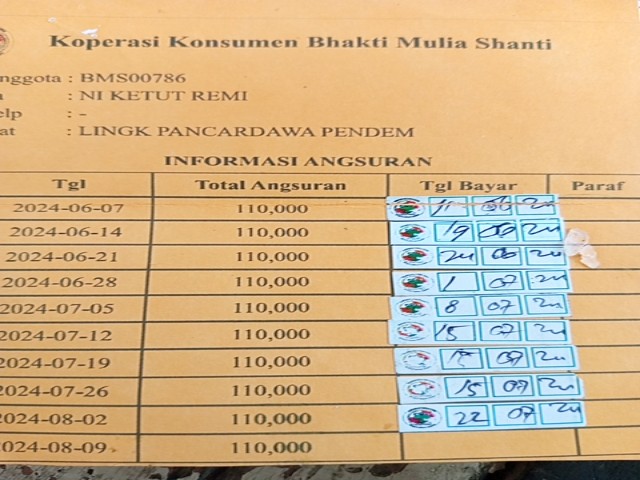 Koperasi Konsumen Bhakti Mulia Shanti
nggota : BMS00786
a : NI KETUT REMI
elp : -
at : LINGK PANCARDAWA PENDEM
INFORMASI ANGSURAN
Tgl Total Angsuran Tgl Bayar Paraf
2024-06-07 110,000 11 06 24
2024-06-14 110,000 19 06 24
2024-06-21 110,000 24 06 24
2024-06-28 110,000 1 07 24
2024-07-05 110,000 8 07 24
2024-07-12 110,000 15 07 24
2024-07-19 110,000 15 07 24
2024-07-26 110,000 15 07 24
024-08-02 110,000 22 07 24
024-08-09 110,000